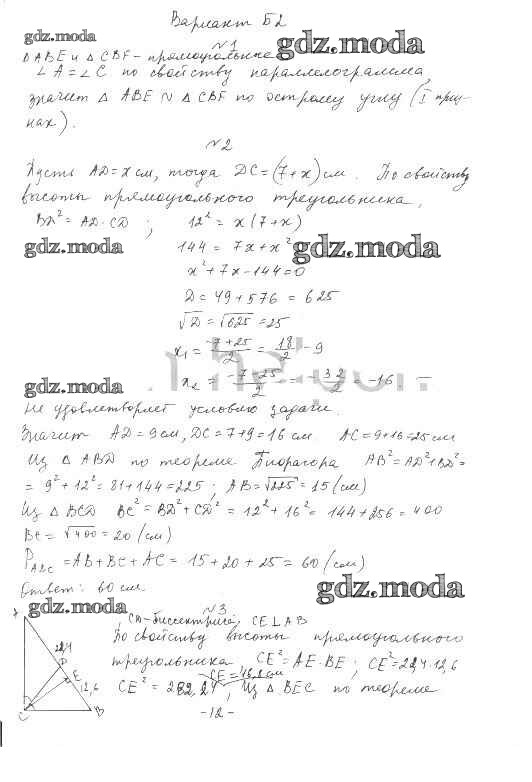 Вариант Б2
№1
gdz.moda
Δ ABE и Δ CBF - прямоугольные
∠A = ∠C по свойству параллелограмма,
значит Δ ABE ~ Δ CBF по острому углу (I приз-
нак).
№2
Пусть AD = x см, тогда DC = (7+x) см. По свойству
высоты прямоугольного треугольника,
BD² = AD·CD; 12² = x(7+x)
gdz.moda 144 = 7x+x² gdz.moda
x²+7x-144=0
D = 49+576 = 625
√D = √625 = 25
x₁ = (-7+25)/2 = 18/2 = 9
gdz.moda x₂ = (-7-25)/2 = -32/2 = -16 —
не удовлетворяет условию задачи.
Значит AD = 9 см, DC = 7+9 = 16 см AC = 9+16 = 25 см
Из Δ ABD по теореме Пифагора AB² = AD²+BD² =
= 9²+12² = 81+144 = 225; AB = √225 = 15 (см)
Из Δ BCD BC² = BD²+CD² = 12²+16² = 144+256 = 400
BC = √400 = 20 (см)
P ABC = AB+BC+AC = 15+20+25 = 60 (см)
Ответ: 60 см gdz.moda
gdz.moda №3
CD - биссектриса, CE ⊥ AB
По свойству высоты прямоугольного
треугольника CE² = AE·BE; CE² = 22,4·12,6
CE = 16,8 см
CE² = 282,24, Из Δ BEC по теореме
D
E
12,6
C
B
-12-